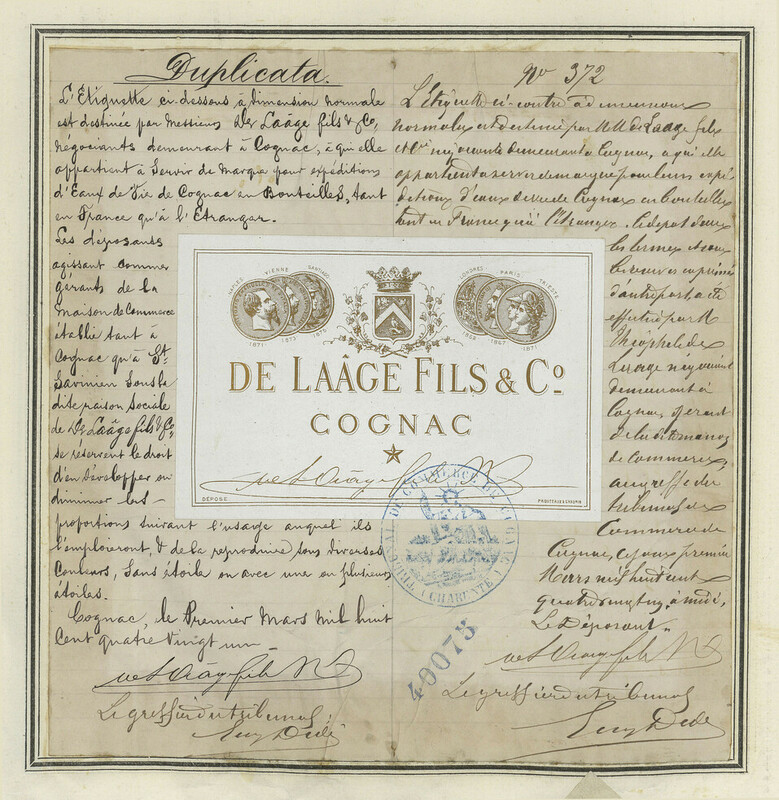 Duplicata.
L'Etiquette ci-dessous à dimension normale
est destinée par Messieurs De Laâge fils & Co,
négociants demeurant à Cognac, à qui elle
appartient à Servir de Marque pour expéditions
d'Eaux de Vie de Cognac en Bouteilles, tant
en France qu'à l'Etranger.
Les déposants
agissant comme
gérants de la
Maison de Commerce
établie tant à
Cognac qu'à St.
Savinien sous la
dite raison sociale
de De Laâge fils & Co,
se réservent le droit
d'en développer ou
diminuer les
proportions suivant l'usage auquel ils
l'emploieront, & de la reproduire sous diverses
Couleurs, sans étoile ou avec une ou plusieurs
étoiles.
Cognac, le Premier Mars Mil huit
Cent quatre Vingt un
Le greffier du tribunal,
No 372
L'Etiquette ci-contre à dimension
normale est destinée par MM. de Laâge fils
et Cie négociants demeurant à Cognac, à qui elle
appartient à servir de marque pour leurs expé-
ditions d'eaux de vie de Cognac en bouteilles
tant en France qu'à l'étranger. Le dépôt
d'autre part, a été
effectué par M.
Théophile de
Laage négociant
demeurant à
Cognac, gérant
de la dite maison
de commerce,
au greffe du
tribunal de
Commerce de
Cognac, ce jour premier
Mars mil huit cent
quatre vingt un, à midi.
Le Déposant.
Le greffier du tribunal
NAPLES VIENNE SANTIAGO
1871 1873 1875
LONDRES PARIS TRIESTE
1868 1867 1871
DE LAÂGE FILS & Co
COGNAC
DÉPOSÉ
TRIBUNAL DE COMMERCE DE COGNAC
(CHARENTE)
40075